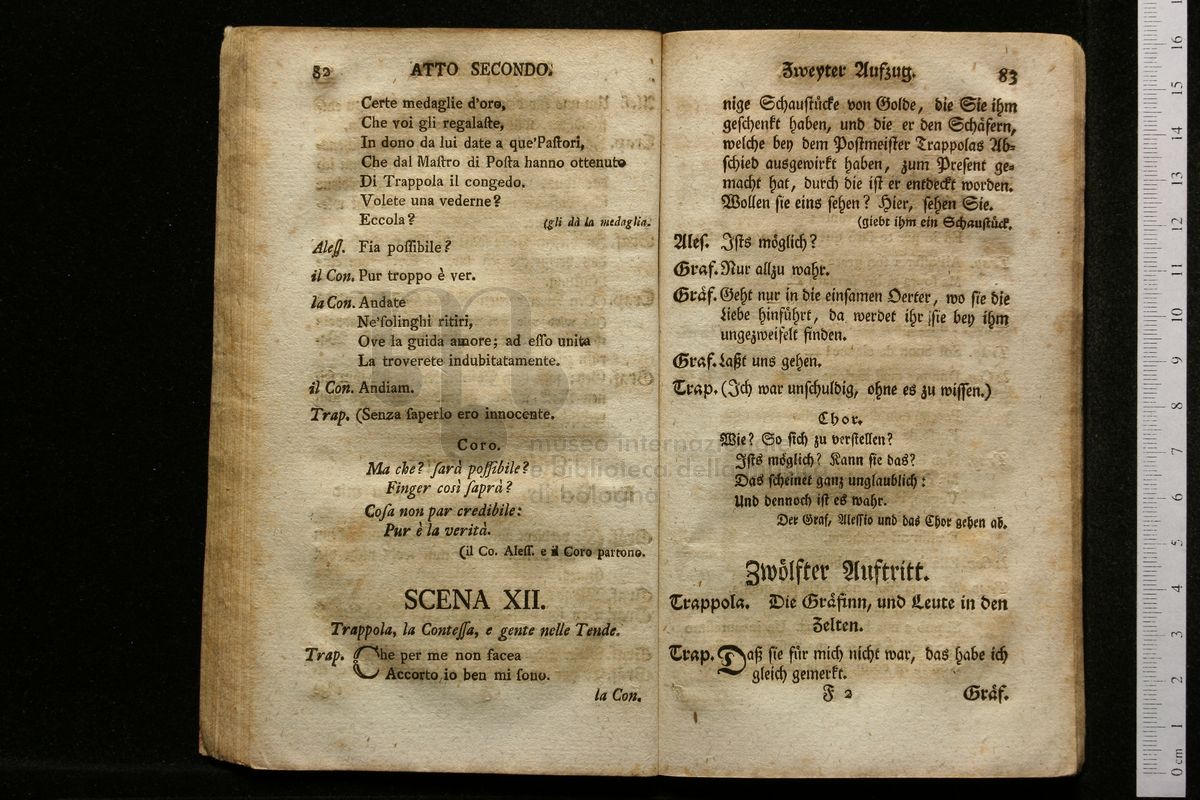 82 ATTO SECONDO.
Certe medaglie d'oro,
Che voi gli regalaſte,
In dono da lui date a que'Paſtori,
Che dal Maſtro di Poſta hanno ottenuto
Di Trappola il congedo.
Volete una vederne?
Eccola? (gli dà la medaglia.
Aleſſ. Fia poſſibile?
il Con. Pur troppo è ver.
la Con. Andate
Ne'ſolinghi ritiri,
Ove la guida amore; ad eſſo unita
La troverete indubitatamente.
il Con. Andiam.
Trap. (Senza ſaperlo ero innocente.
Coro.
Ma che? ſarà poſſibile?
Finger così ſaprà?
Coſa non par credibile:
Pur è la verità.
(il Co. Aleſſ. e il Coro partono.
SCENA XII.
Trappola, la Conteſſa, e gente nelle Tende.
Trap. Che per me non facea
Accorto io ben mi ſono.
la Con.
Zweyter Aufzug. 83
nige Schauſtücke von Golde, die Sie ihm
geſchenkt haben, und die er den Schäfern,
welche bey dem Poſtmeiſter Trappolas Ab-
ſchied ausgewirkt haben, zum Preſent ge-
macht hat, durch die iſt er entdeckt worden.
Wollen ſie eins ſehen? Hier, ſehen Sie.
(giebt ihm ein Schauſtück.
Aleſ. Iſts möglich?
Graf. Nur allzu wahr.
Gräf. Geht nur in die einſamen Oerter, wo ſie die
Liebe hinführt, da werdet ihr ſie bey ihm
ungezweifelt finden.
Graf. Laßt uns gehen.
Trap. (Ich war unſchuldig, ohne es zu wiſſen.)
Chor.
Wie? So ſich zu verſtellen?
Iſts möglich? Kann ſie das?
Das ſcheinet ganz unglaublich:
Und dennoch iſt es wahr.
Der Graf, Aleſſio und das Chor gehen ab.
Zwölfter Auftritt.
Trappola. Die Gräfinn, und Leute in den
Zelten.
Trap. Daß ſie für mich nicht war, das habe ich
gleich gemerkt.
F 2 Gräf.
museo internazi
e biblioteca della
di bologna
0 cm 1 2 3 4 5 6 7 8 9 10 11 12 13 14 15 16